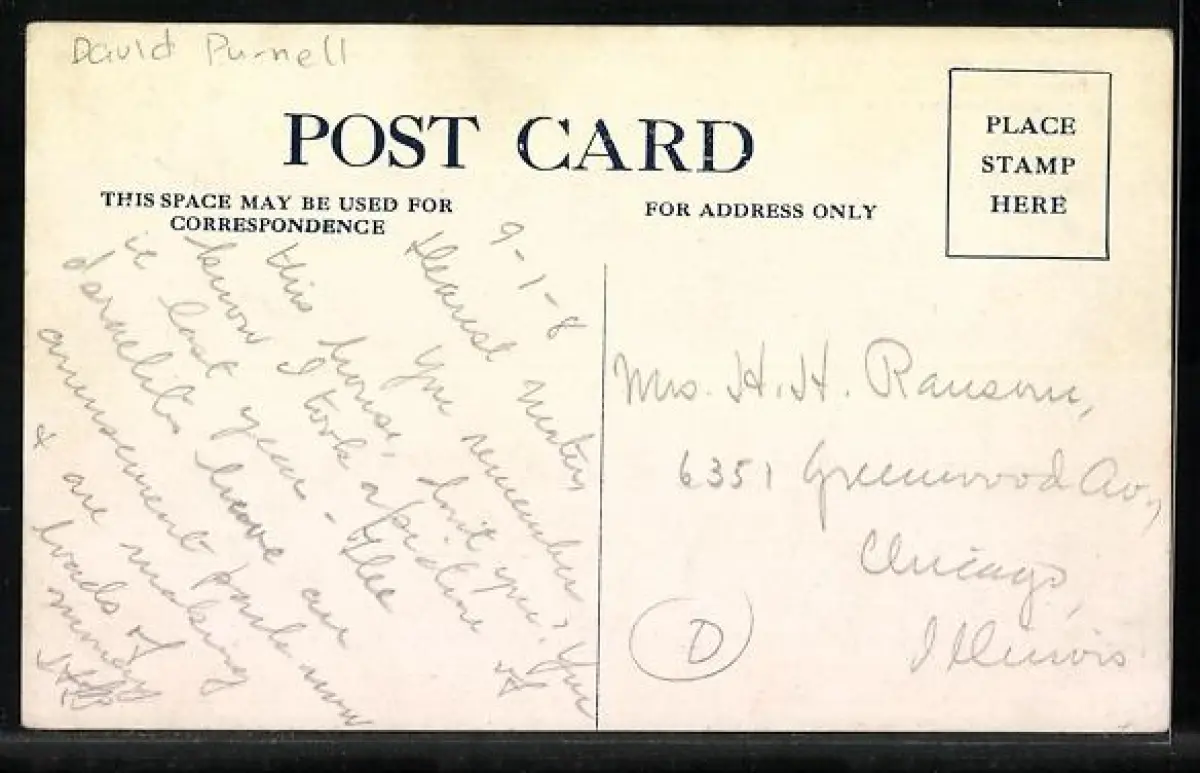 David Purnell
POST CARD
PLACE
STAMP
HERE
THIS SPACE MAY BE USED FOR
CORRESPONDENCE
FOR ADDRESS ONLY
9-1-8
Dearest
You remember
this house, don't you? You
know I took a picture of
it last year - The
Israelites have an
amusement park now
& are making
loads of
money
Mrs. H. H. Ransom,
6351 Greenwood Av.,
Chicago,
Illinois
D